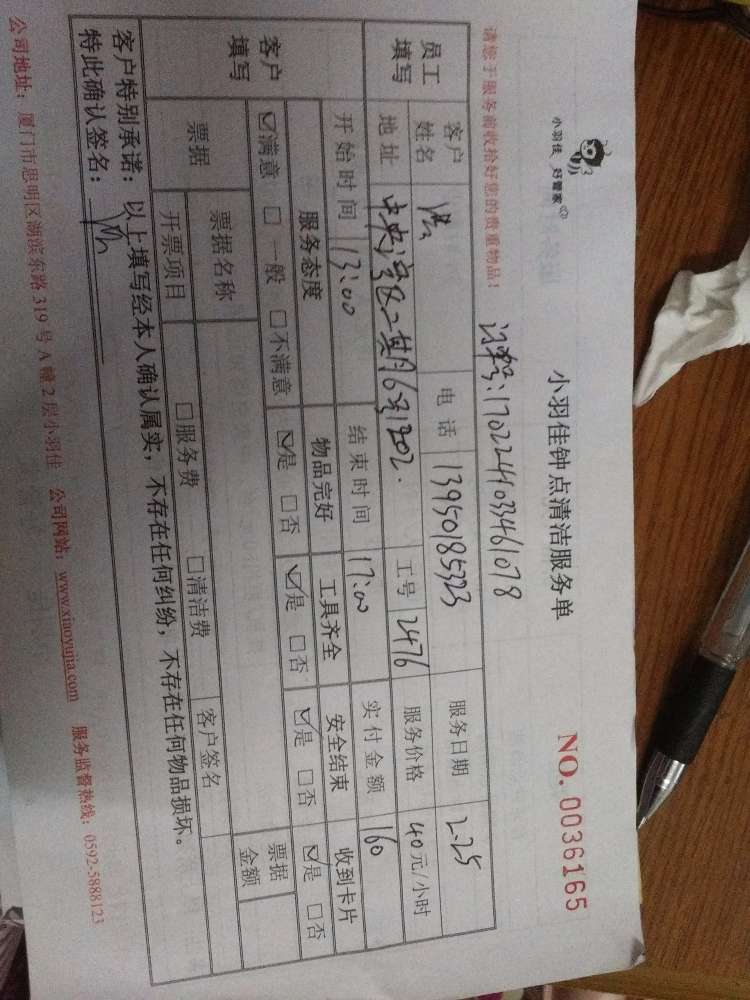 小羽佳 好管家
小羽佳钟点清洁服务单
NO. 0036165
请您于服务前收拾好您的贵重物品！
订单号:1702241033461078
员工填写
客户姓名 电话 13950185323 服务日期 2.25
地址 中央湾区二期16号1202. 工号 2476 服务价格 40元/小时
客户填写
开始时间 13:00 结束时间 17:00 实付金额 160
服务态度 物品完好 工具齐全 安全结束 收到卡片
☑满意 □一般 □不满意 ☑是 □否 ☑是 □否 ☑是 □否 ☑是 □否
票据 票据名称 票据金额
开票项目 □服务费 □清洁费 客户签名
客户特别承诺：以上填写经本人确认属实，不存在任何纠纷，不存在任何物品损坏。
特此确认签名：
公司地址：厦门市思明区湖滨东路319号A幢2层小羽佳 公司网站：www.xiaoyujia.com 服务监督热线：0592-5888123